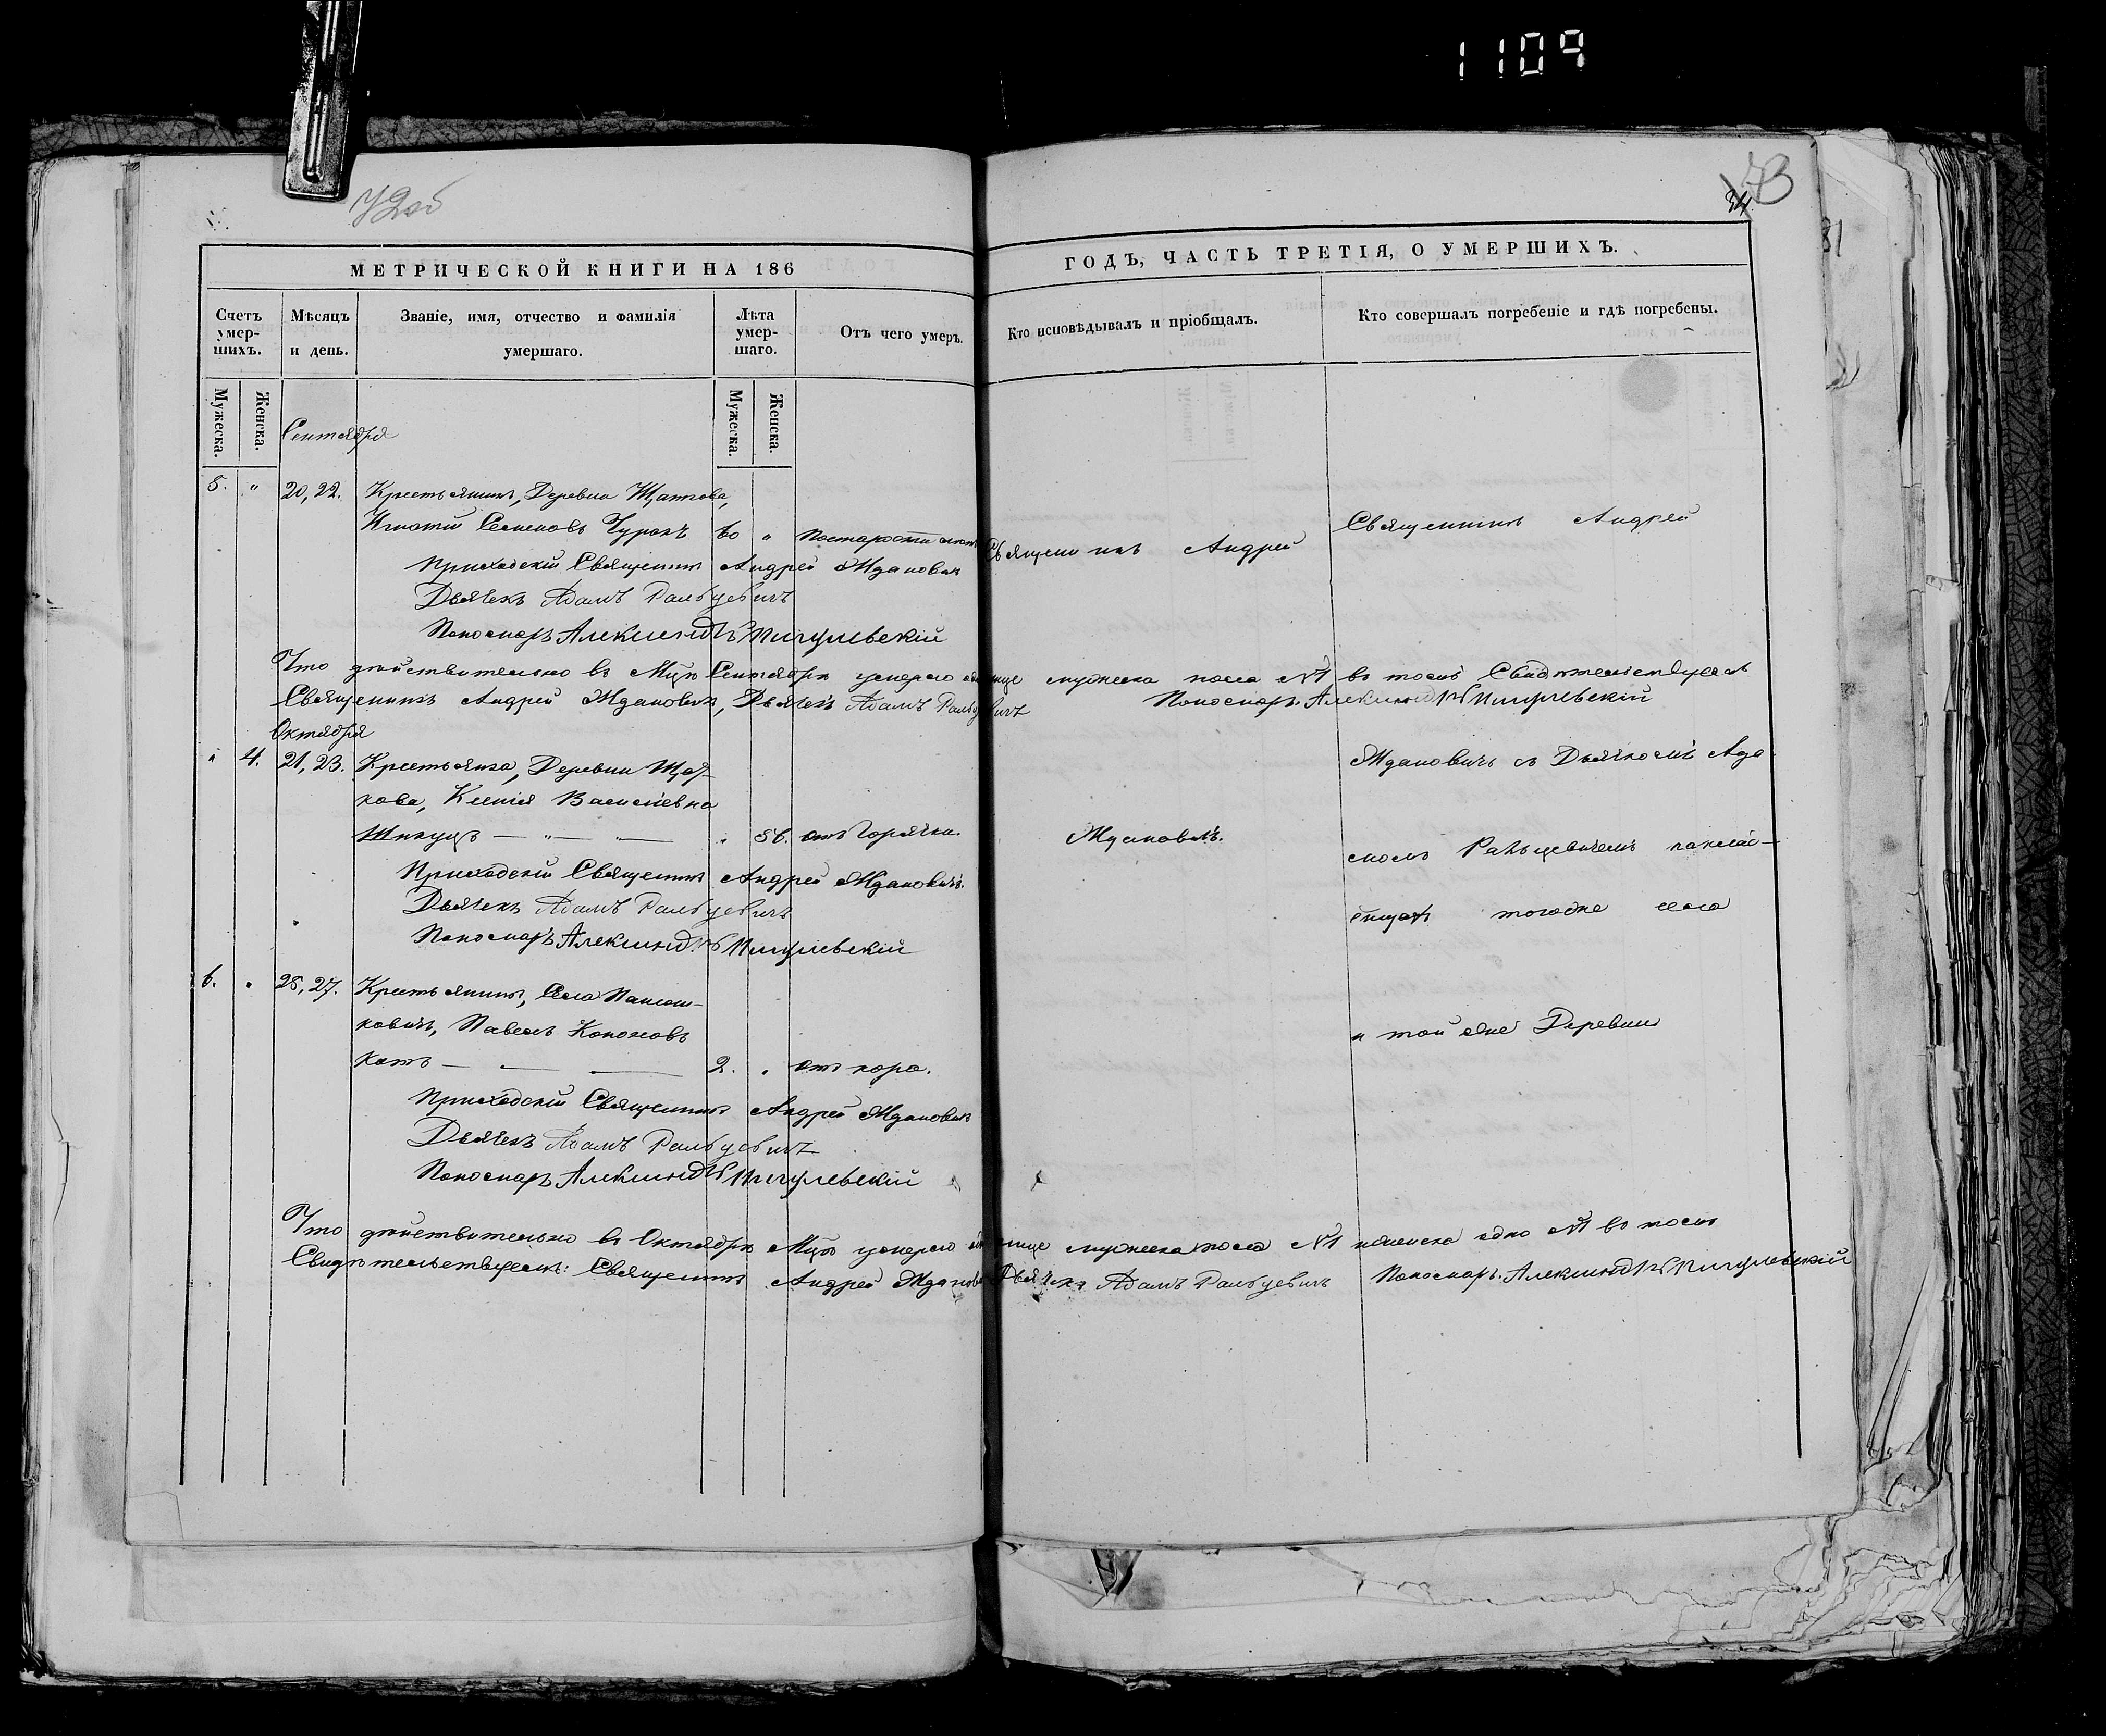 1109
72об
73
34
МЕТРИЧЕСКОЙ КНИГИ НА 186
ГОДЪ, ЧАСТЬ ТРЕТІЯ, О УМЕРШИХЪ.
Счетъ умер-шихъ.
Мѣсяцъ и день.
Званіе, имя, отчество и фамилія умершаго.
Лѣта умер-шаго.
Отъ чего умеръ.
Кто исповѣдывалъ и пріобщалъ.
Кто совершалъ погребеніе и гдѣ погребены.
Мужеска.
Женска.
Мужеска.
Женска.
Сентября
5. " 20, 22. Крестьянинъ, Деревни
Игнатій Семеновъ Чуракъ 60 " по старости лѣтъ
Священникъ Андрей
Священникъ Андрей
Приходскій Священникъ Андрей Ждановичъ
Дьячекъ Адамъ Ральцевичъ
Пономарь Александръ Пигулевскій
Что дѣйствительно въ Мцѣ Сентябрѣ умерло мужеска пола №1 въ томъ Свидѣтельствуемъ
Священникъ Андрей Ждановичъ, Дьячекъ Адамъ Ральцевичъ Пономарь Александръ Пигулевскій
Октября
" 4. 21, 23. Крестьянка, Деревни Щат-
кова, Ксенія Васильевна
" 56. отъ горячки.
Ждановичъ.
Ждановичъ съ Дьячкомъ Ада-
момъ Ральцевичемъ на клад-
бищѣ тогоже села
Приходскій Священникъ Андрей Ждановичъ.
Дьячекъ Адамъ Ральцевичъ
Пономарь Александръ Пигулевскій
6. " 25, 27. Крестьянинъ, Села Панюш-
ковичъ, Павелъ Кононовъ
Катъ 2. " отъ кора.
и той же Деревни
Приходскій Священникъ Андрей Ждановичъ
Дьячекъ Адамъ Ральцевичъ
Пономарь Александръ Пигулевскій
Что дѣйствительно въ Октябрѣ Мцѣ умерло мужеска пола №1 женска одно №1 въ томъ
Свидѣтельствуемъ: Священникъ Андрей Ждановичъ Дьячекъ Адамъ Ральцевичъ Пономарь Александръ Пигулевскій